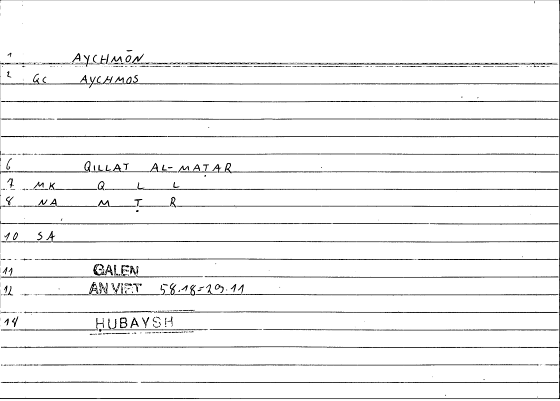 1 AYCHMŌN
2 GC AYCHMOS
6 QILLAT AL-MAṬAR
7 MK Q L L
8 NA M Ṭ R
10 SA
11 GALEN
12 AN VIET 58.18=29.11
14 ḤUBAYSH